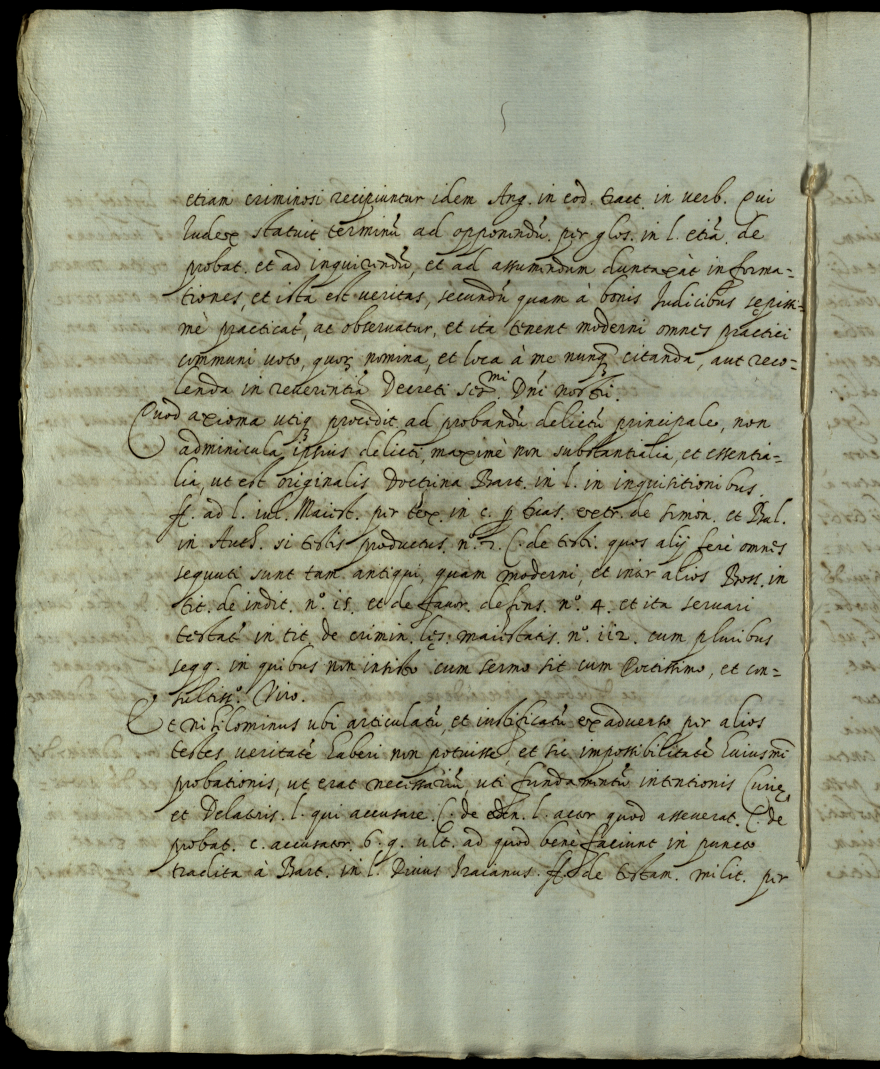 etiam criminosi recipiuntur idem Ang. in eod. tract. in verb. Qui
Iudex statuit terminũ ad opponendũ. per glos. in l. etiã. de
probat. et ad inquirendũ, et ad assumendum duntaxàt informa=
tiones, et ista est veritas, secundũ quam à bonis Iudicibus sępissi=
mè practicať, ac observatur, et ita tenent moderni omnes practici
communi uoto, quoꝝ nomina, et loca à me nunqꝫ citanda, aut reco=
lenda in reuerentiã Decreti Ss.mi Dñi nostri.
Quod axioma utiqꝫ procedit ad probandũ delictũ principale, non
adminicula ipsius delicti, maximè non substantialia, et essentia=
lia, ut est originalis Doctrina Bart. in l. in inquisitionibus
ff. ad l. iul. Maiest. per tex. in c. p tuas. extr. de simon. et Bal.
in Auth. si testis productus. nº. 2. C. de testi. quos alij ferè omnes
sequuti sunt tam antiqui, quam moderni, et inter alios Boss. in
tit. de indit. nº. 15. et de fauor. defens. nº. 4. et ita seruari
testať in tit. de crimin. lęs. maiestatis. nº. 112. cum pluribus
seqq. in quibus non insisto cum sermo sit cum Doctissimo, et con=
sultissº. Viro.
Et nihilominus ubi articulatũ, et iustificatũ ex aduerso per alios
testes ueritatẽ haberi non potuisse, et sic impossibilitatẽ huiusmi
probationis, ut erat necessariũ, uti fundamentũ intentionis Curię
et Delatoris. l. qui accusare. C. de eden. l. actor quod asseuerat. C. de
probat. c. accusator. 6. q. ult. ad quod benè faciunt in puncto
tradita à Bart. in l. Diuus Traianus. ff. de testam. milit. per